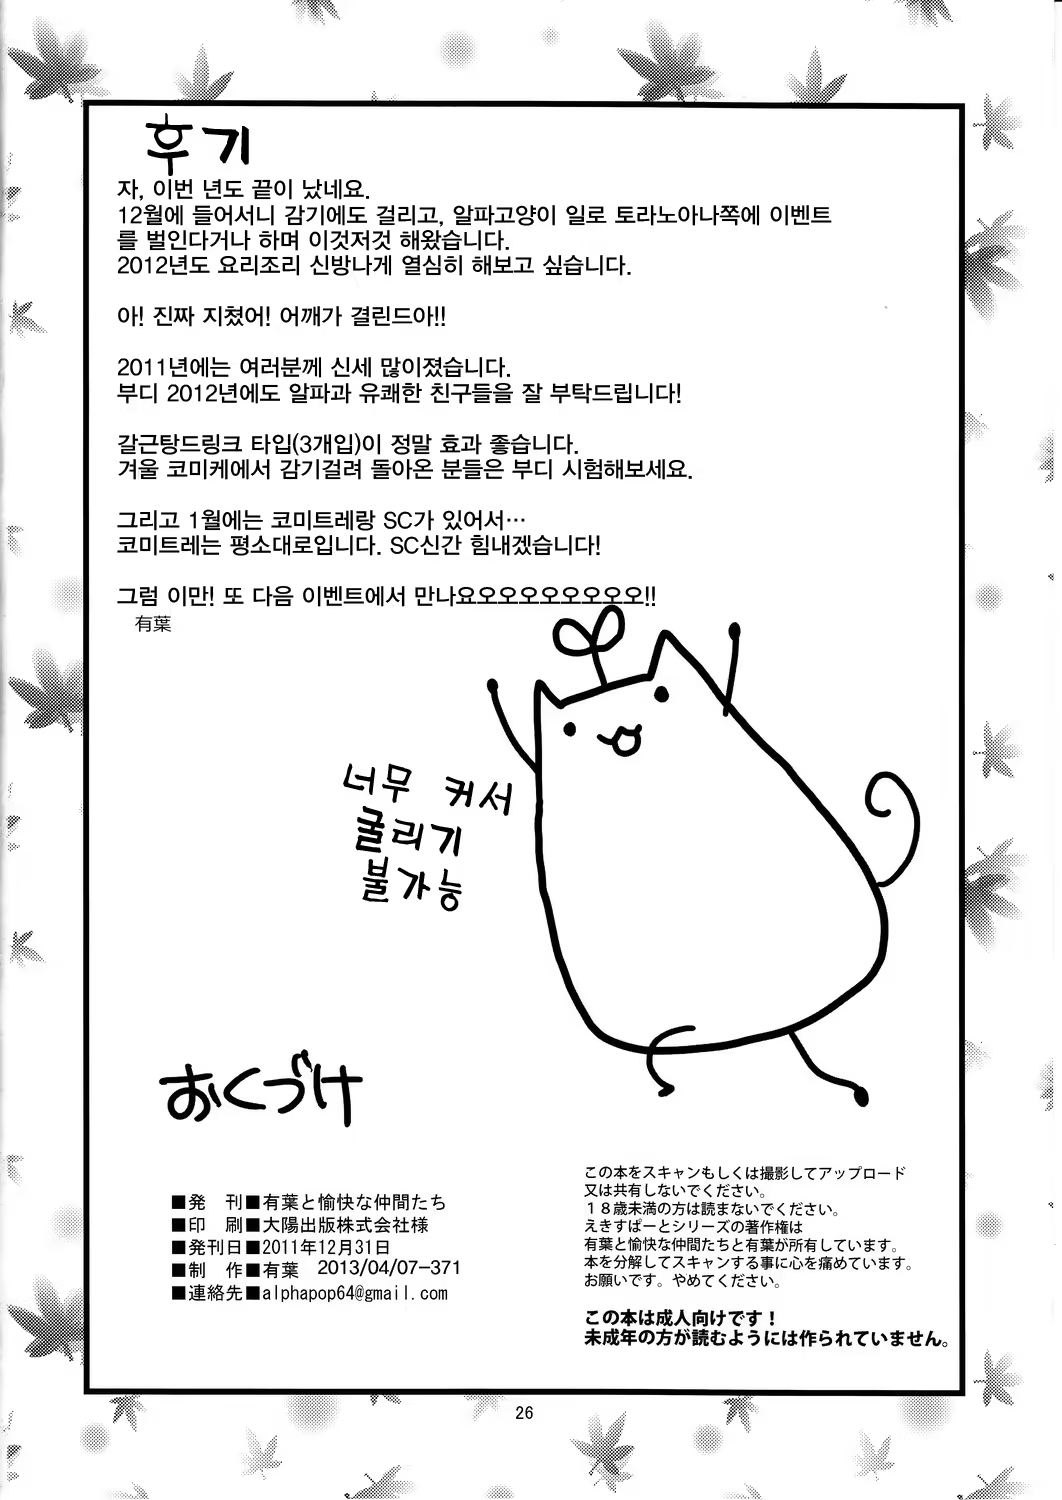 후기
자, 이번 년도 끝이 났네요.
12월에 들어서니 감기에도 걸리고, 알파고양이 일로 토라노아나쪽에 이벤트
를 벌인다거나 하며 이것저것 해왔습니다.
2012년도 요리조리 신방나게 열심히 해보고 싶습니다.
아! 진짜 지쳤어! 어깨가 결린드아!!
2011년에는 여러분께 신세 많이졌습니다.
부디 2012년에도 알파과 유쾌한 친구들을 잘 부탁드립니다!
갈근탕드링크 타입(3개입)이 정말 효과 좋습니다.
겨울 코미케에서 감기걸려 돌아온 분들은 부디 시험해보세요.
그리고 1월에는 코미트레랑 SC가 있어서…
코미트레는 평소대로입니다. SC신간 힘내겠습니다!
그럼 이만! 또 다음 이벤트에서 만나요오오오오오오오오!!
有葉
너무 커서
굴리기
불가능
おくづけ
■発　刊■有葉と愉快な仲間たち
■印　刷■大陽出版株式会社様
■発刊日■2011年12月31日
■制　作■有葉　2013/04/07-371
■連絡先■alphapop64@gmail.com
この本をスキャンもしくは撮影してアップロード
又は共有しないでください。
１８歳未満の方は読まないでください。
えきすぱーとシリーズの著作権は
有葉と愉快な仲間たちと有葉が所有しています。
本を分解してスキャンする事に心を痛めています。
お願いです。やめてください。
この本は成人向けです！
未成年の方が読むようには作られていません。
26